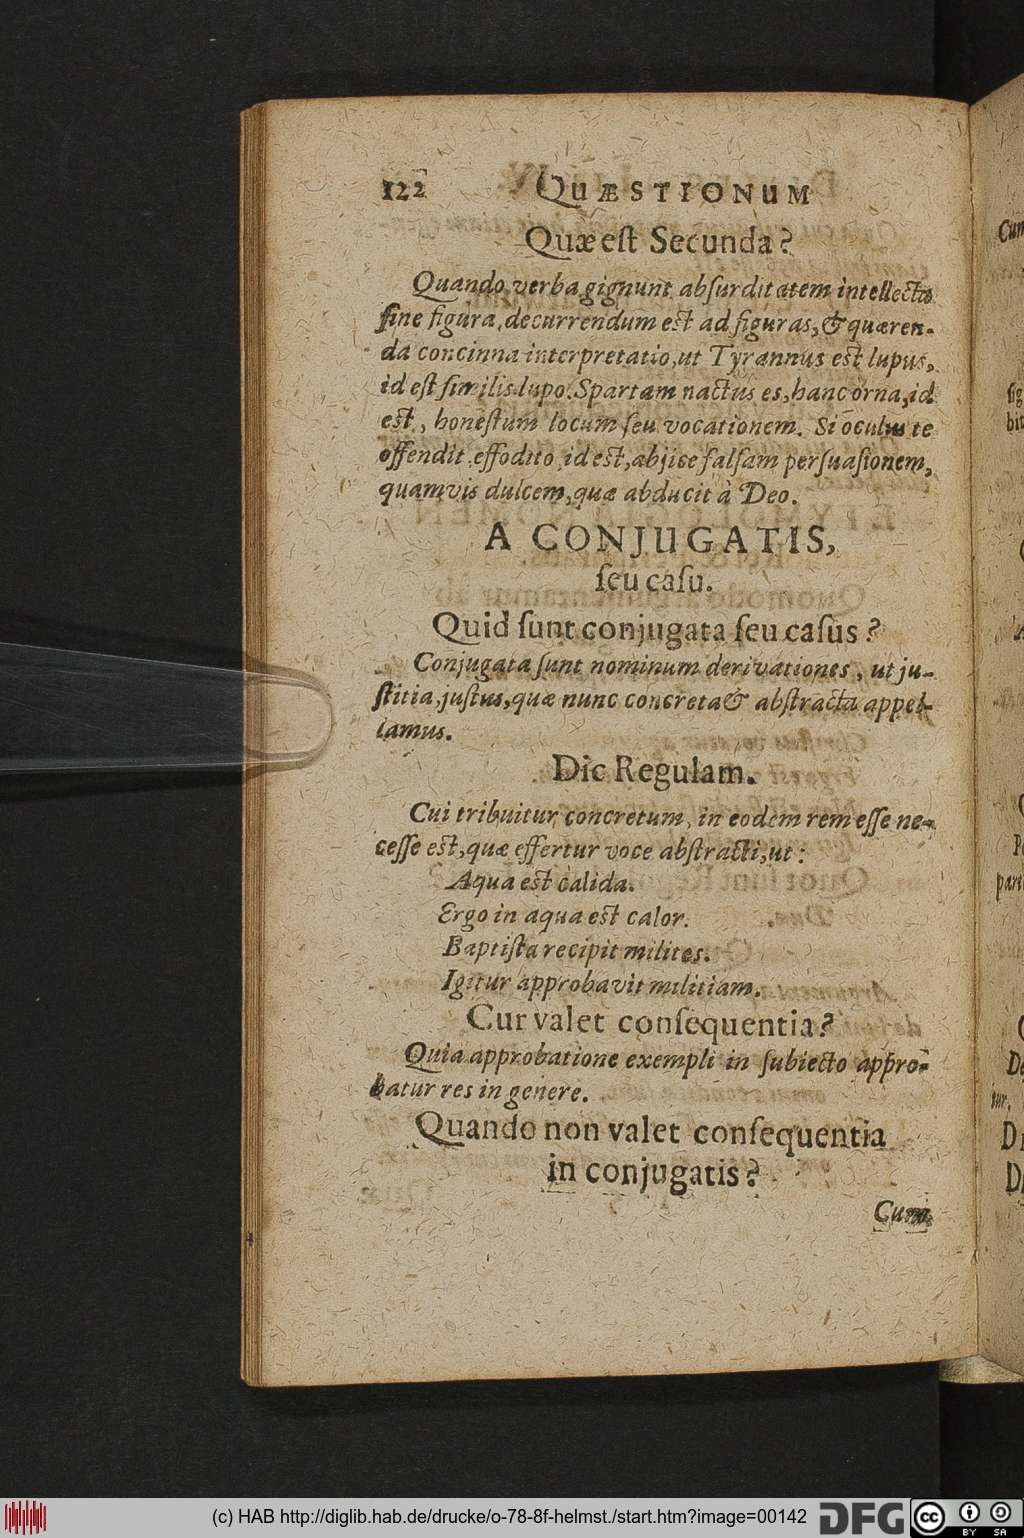 122 QUÆSTIONUM
Quæ eſt Secunda?
Quando verba gignunt abſurditatem intellecta
ſine figura, decurrendum est ad figuras, & quæren-
da concinna interpretatio, ut Tyrannus est lupus,
id eſt ſimilis lupo. Spartam nactus es, hanc orna, id
est, honeſtum locum ſeu vocationem. Si oculus te
offendit effodito, id est, abjice falſam perſuaſionem,
quamvis dulcem, quæ abducit à Deo.
A CONJUGATIS,
ſeu caſu.
Quid ſunt conjugata ſeu caſus?
Conjugata ſunt nominum derivationes, ut ju-
ſtitia, juſtus, quæ nunc concreta & abſtracta appel-
lamus.
Dic Regulam.
Cui tribuitur concretum, in eodem rem eſſe ne-
ceſſe est, quæ effertur voce abſtracti, ut:
Aqua est calida.
Ergo in aqua est calor.
Baptiſta recipit milites.
Igitur approbavit militiam.
Cur valet conſequentia?
Quia approbatione exempli in ſubiecto appro-
batur res in genere.
Quando non valet conſequentia
in conjugatis?
Cum
Cum
(c) HAB http://diglib.hab.de/drucke/o-78-8f-helmst./start.htm?image=00142
DFG
cc BY SA